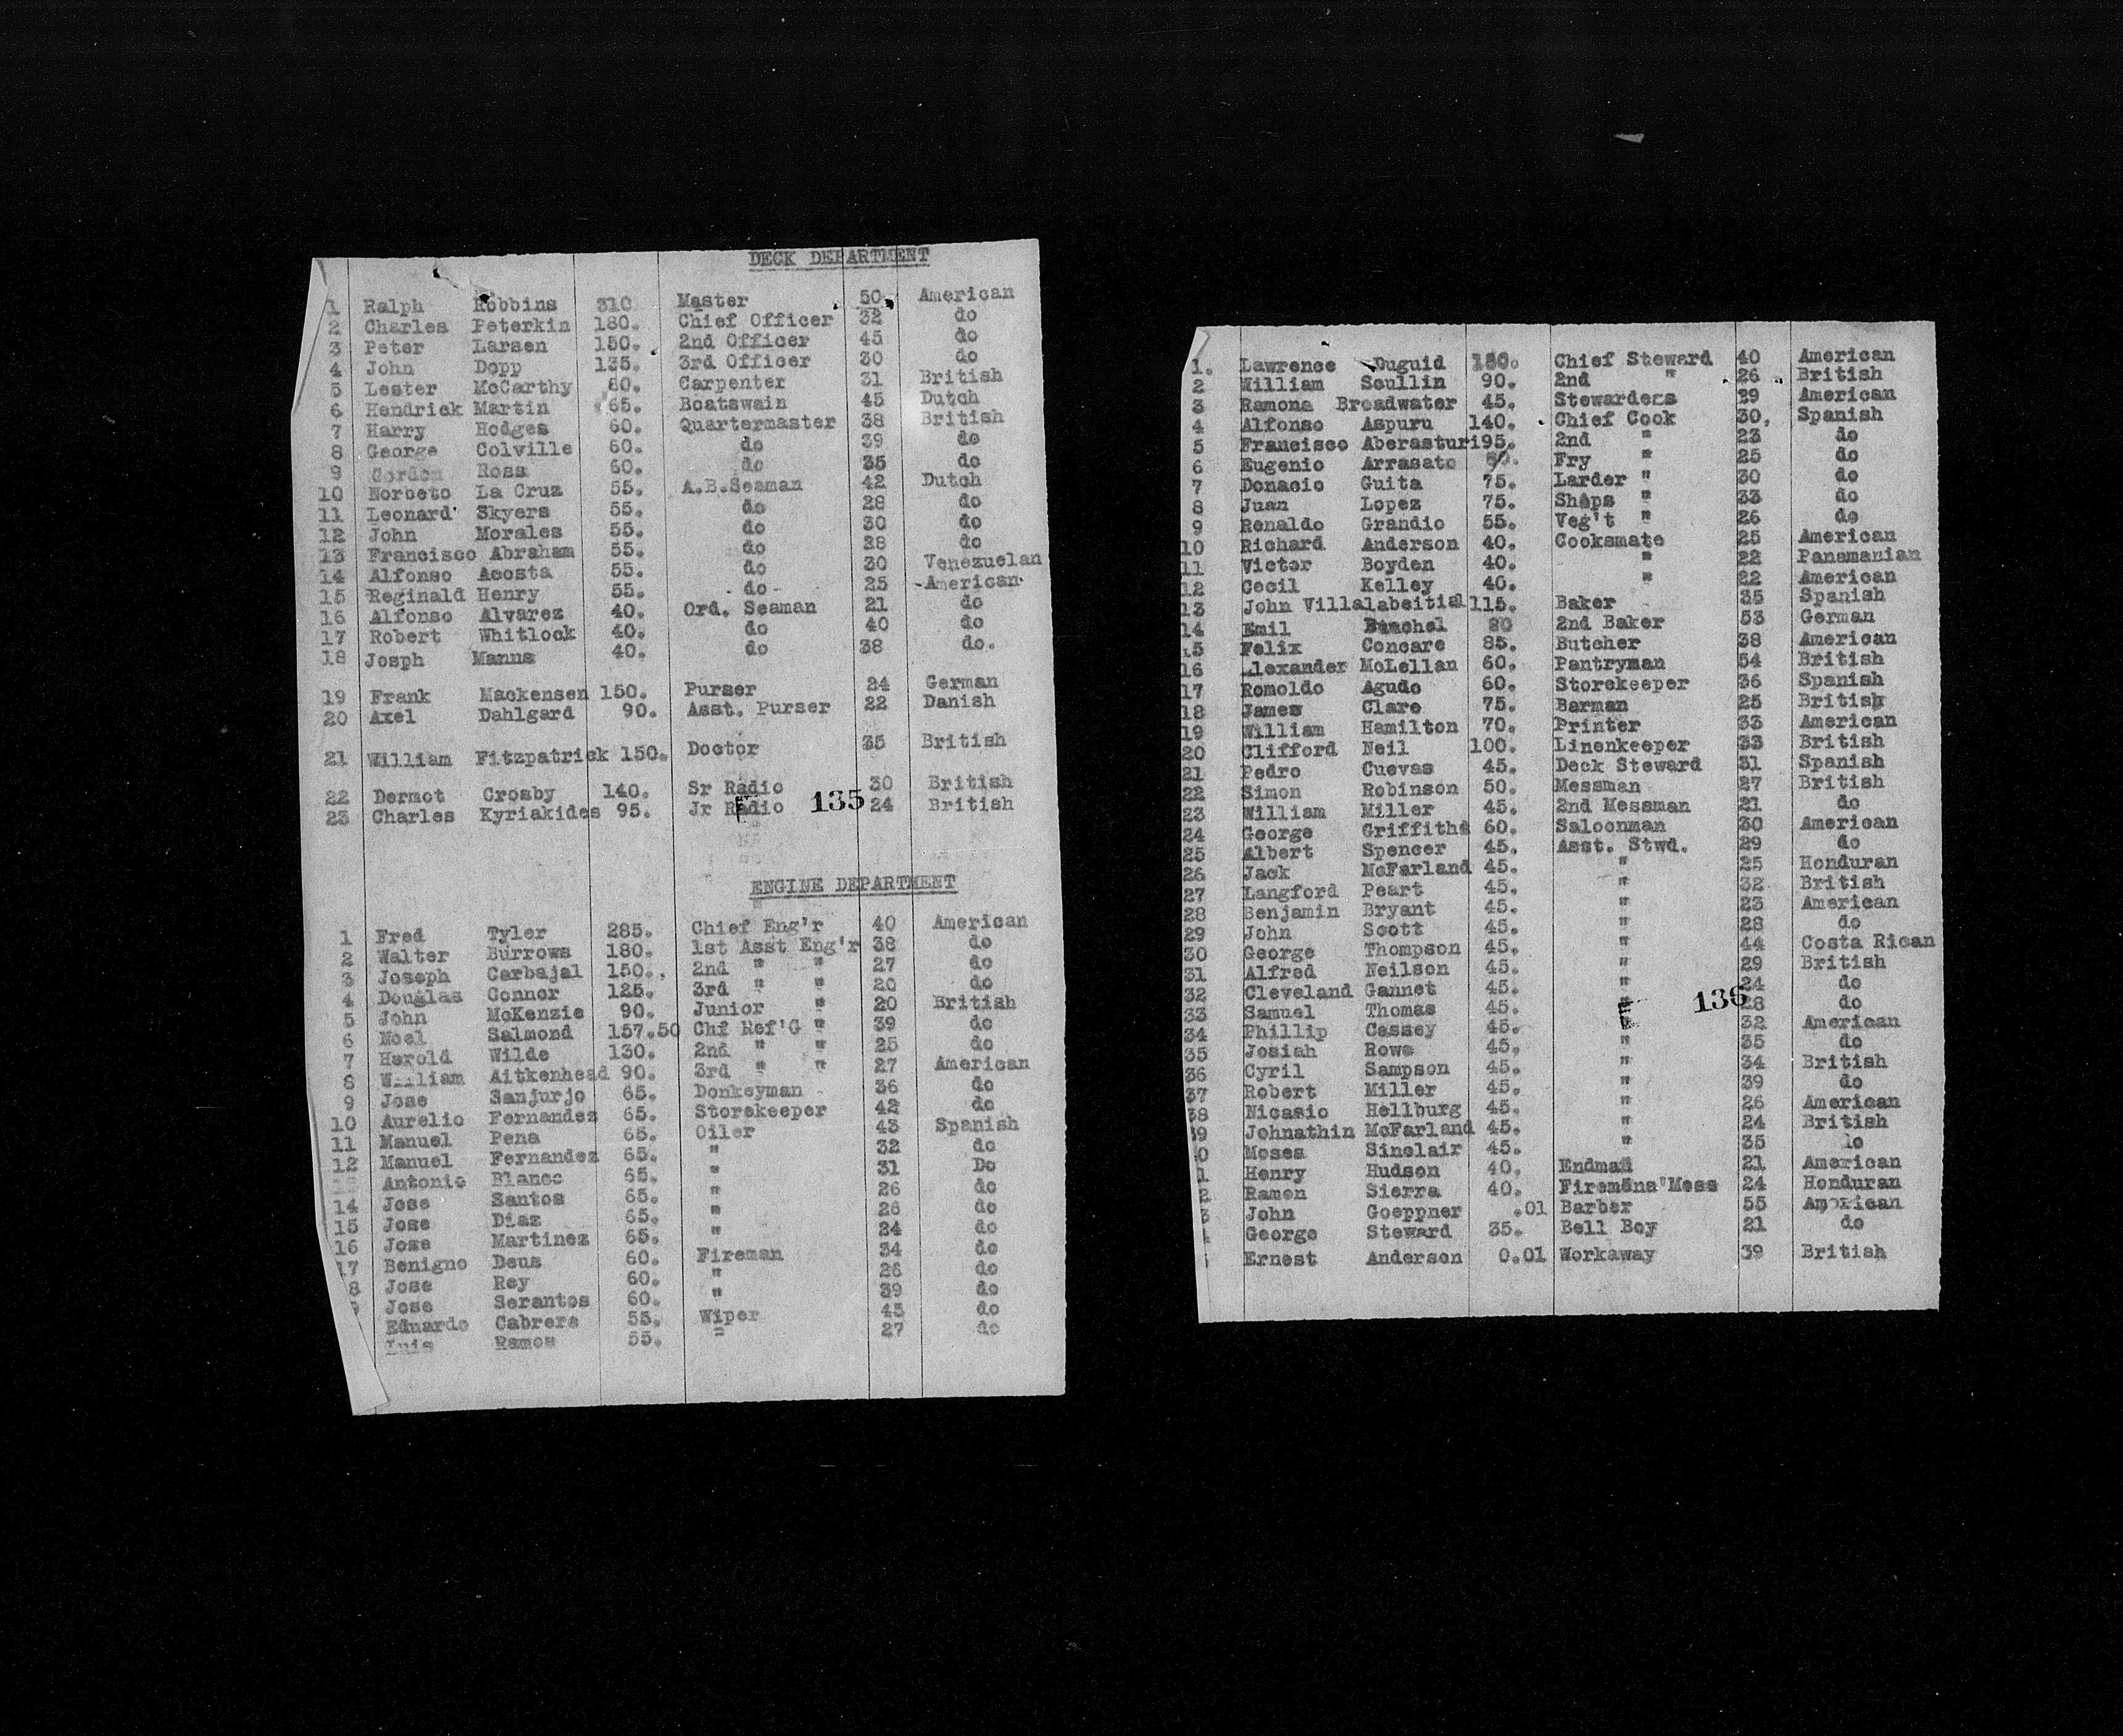 DECK DEPARTMENT
1 Ralph Robbins 310 Master 50. American
2 Charles Peterkin 180. Chief Officer 32 do
3 Peter Larsen 150. 2nd Officer 45 do
4 John Dopp 135. 3rd Officer 30 do
5 Lester McCarthy 80. Carpenter 31 British
6 Hendrick Martin 65. Boatswain 45 Dutch
7 Harry Hodges 60. Quartermaster 38 British
8 George Colville 60. do 39 do
9 Gordon Ross 60. do 35 do
10 Norbeto La Cruz 55. A.B.Seaman 42 Dutch
11 Leonard Skyers 55. do 28 do
12 John Morales 55. do 30 do
13 Francisco Abraham 55. do 28 do
14 Alfonso Acosta 55. do 30 Venezuelan
15 Reginald Henry 55. do 25 American
16 Alfonso Alvarez 40. Ord. Seaman 21 do
17 Robert Whitlock 40. do 40 do
18 Josph Manns 40. do 38 do.
19 Frank Mackensen 150. Purser 24 German
20 Axel Dahlgard 90. Asst. Purser 22 Danish
21 William Fitzpatrick 150. Doctor 35 British
22 Dermot Crosby 140. Sr Radio 30 British
23 Charles Kyriakides 95. Jr Radio 24 British
135
ENGINE DEPARTMENT
1 Fred Tyler 285. Chief Eng'r 40 American
2 Walter Burrows 180. 1st Asst Eng'r 38 do
3 Joseph Carbajal 150. 2nd " " 27 do
4 Douglas Connor 125. 3rd " " 20 do
5 John McKenzie 90. Junior " 20 British
6 Noel Salmond 157.50 Chf Ref'G " 39 do
7 Harold Wilde 130. 2nd " " 25 do
8 William Aitkenhead 90. 3rd " " 27 American
9 Jose Sanjurjo 65. Donkeyman 36 do
10 Aurelio Fernandez 65. Storekeeper 42 do
11 Manuel Pena 65. Oiler 43 Spanish
12 Manuel Fernandez 65. " 32 do
Antonio Blanco 65. " 31 Do
14 Jose Santos 65. " 26 do
15 Jose Diaz 65. " 26 do
16 Jose Martinez 65. " 24 do
17 Benigno Deus 60. Fireman 34 do
8 Jose Rey 60. " 26 do
Jose Serantos 60. " 39 do
Eduardo Cabrera 55. Wiper 45 do
Luis Ramos 55. " 27 do
1. Lawrence Duguid 180. Chief Steward 40 American
2 William Scullin 90. 2nd " 26 British
3 Ramona Broadwater 45. Stewardess 29 American
4 Alfonso Aspuru 140. Chief Cook 30, Spanish
5 Francisco Aberasturi 95. 2nd " 23 do
6 Eugenio Arrasate 80. Fry " 25 do
7 Donacio Guita 75. Larder " 30 do
8 Juan Lopez 75. Shaps " 33 do
9 Renaldo Grandio 55. Veg't " 26 do
10 Richard Anderson 40. Cooksmate 25 American
11 Victor Boyden 40. " 22 Panamanian
12 Cecil Kelley 40. " 22 American
13 John Villalabeitia 115. Baker 35 Spanish
14 Emil 80 2nd Baker 53 German
15 Felix Concare 85. Butcher 38 American
16 Alexander McLellan 60. Pantryman 54 British
17 Romoldo Agudo 60. Storekeeper 36 Spanish
18 James Clare 75. Barman 25 British
19 William Hamilton 70. Printer 33 American
20 Clifford Neil 100. Linenkeeper 33 British
21 Pedro Cuevas 45. Deck Steward 31 Spanish
22 Simon Robinson 50. Messman 27 British
23 William Miller 45. 2nd Messman 21 do
24 George Griffiths 60. Saloonman 30 American
25 Albert Spencer 45. Asst. Stwd. 29 do
26 Jack McFarland 45. " 25 Honduran
27 Langford Peart 45. " 32 British
28 Benjamin Bryant 45. " 23 American
29 John Scott 45. " 28 do
30 George Thompson 45. " 44 Costa Rican
31 Alfred Neilson 45. " 29 British
32 Cleveland Gannet 45. " 24 do
33 Samuel Thomas 45. " 28 do
136
34 Phillip Cassey 45. " 32 American
35 Josiah Rowe 45. " 35 do
36 Cyril Sampson 45. " 34 British
37 Robert Miller 45. " 39 do
38 Nicasio Hellburg 45. " 26 American
39 Johnathin McFarland 45. " 24 British
0 Moses Sinclair 45. " 35 do
1 Henry Hudson 40. Endman 21 American
2 Ramon Sierra 40. Firemens Mess 24 Honduran
3 John Goeppner .01 Barber 55 American
George Steward 35. Bell Boy 21 do
Ernest Anderson 0.01 Workaway 39 British